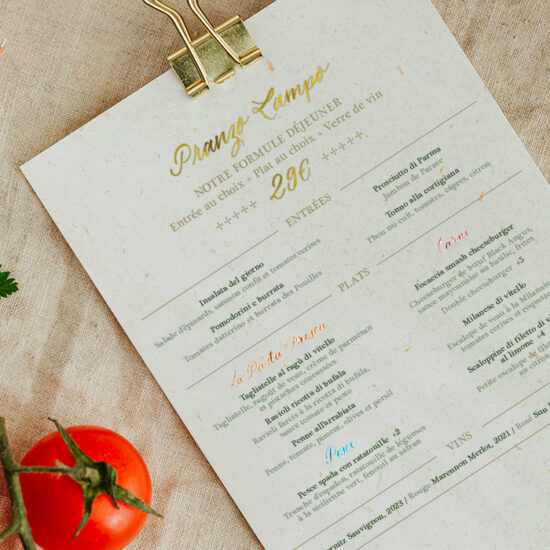 Pranzo Lampo
NOTRE FORMULE DÉJEUNER
Entrée au choix + Plat au choix + Verre de vin
+++++ 29€ +++++
ENTRÉES
Insalata del giorno
Salade d'épinards, saumon confit et tomates cerises
Pomodorini e burrata
Tomates datterino et burrata des Pouilles
Prosciutto di Parma
Jambon de Parme
Tonno alla cortigiana
Thon mi-cuit, tomates, câpres, citron
PLATS
La Pasta Fresca
Tagliatelle al ragù di vitello
Tagliatelle, ragoût de veau, crème de parmesan
et pistaches concassées
Ravioli ricotta di bufala
Ravioli farcis à la ricotta di bufala,
sauce tomate et pesto
Penne all'arrabiata
Penne, tomate, piment, olives et persil
Pesce
Pesce spada con ratatouille +2
Tranche d'espadon, ratatouille de légumes
à la sicilienne vert, fenouil au safran
Carni
Focaccia smash cheeseburger
Cheeseburger de bœuf Black Angus,
sauce mayonnaise au basilic, frites
Double cheeseburger +5
Milanese di vitello
Escalope de veau à la Milana
tomates cerises et roquet
Scaloppine di filetto di v
al limone +4
Petite escalope de filet
au citron
VINS
rnitz Sauvignon, 2023 / Rouge Marennon Merlot, 2021 / Rosé Sun